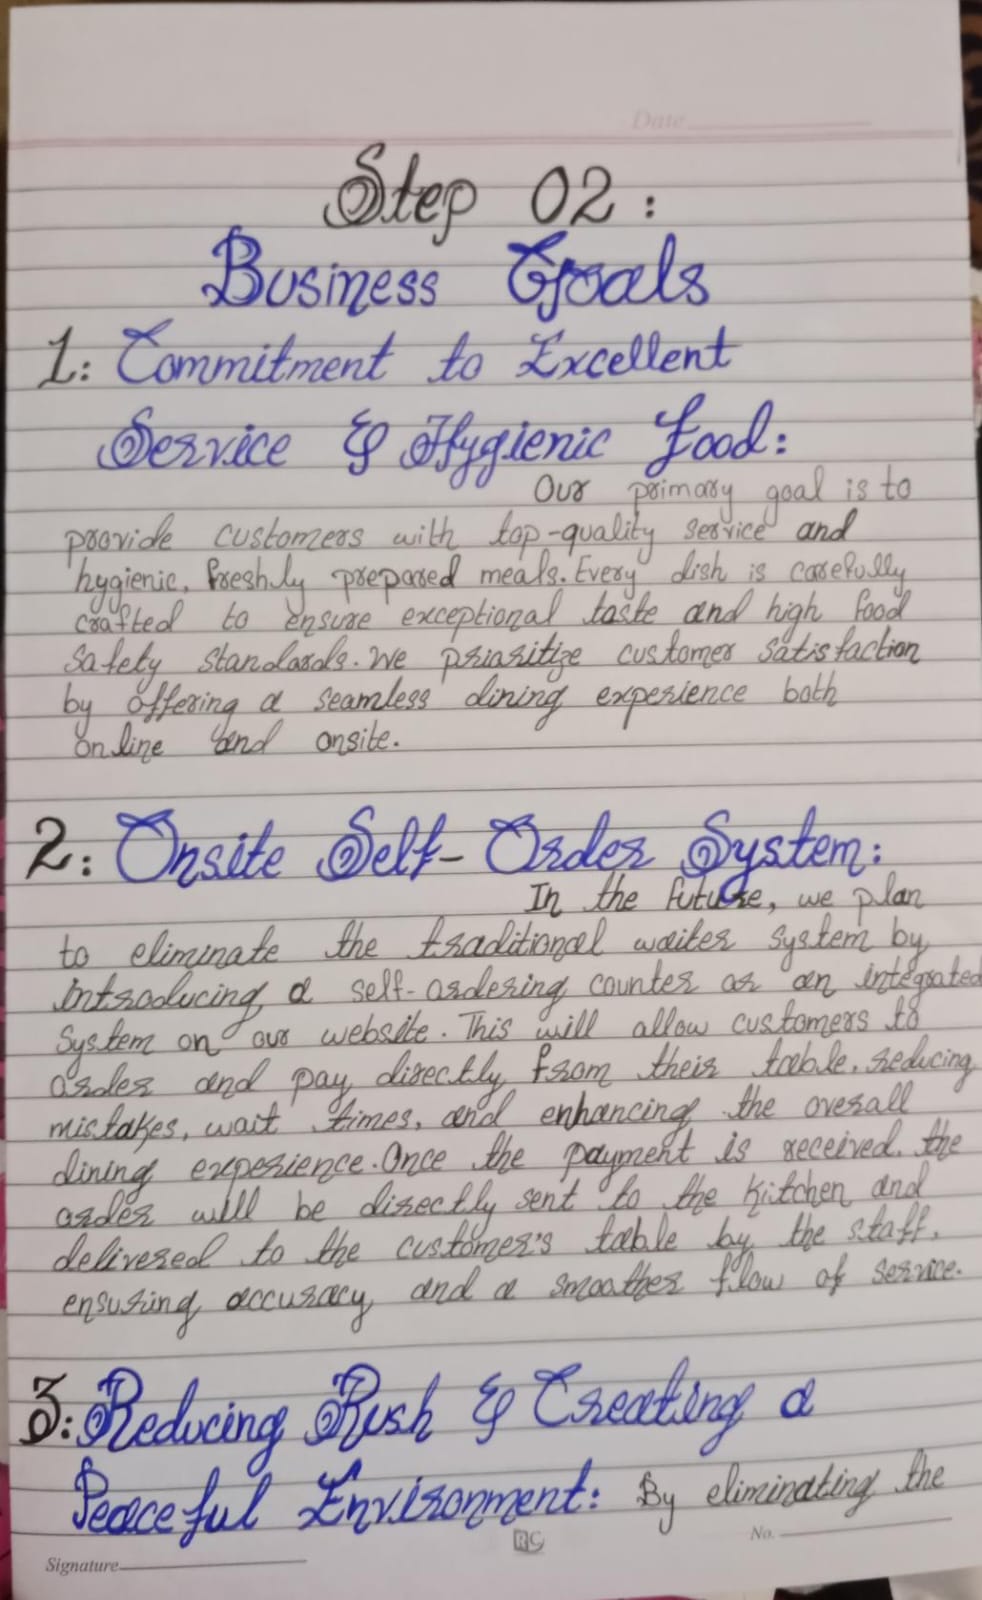 Date
Step 02:
Business Goals
1: Commitment to Excellent
Service & Hygienic Food:
Our primary goal is to
provide customers with top-quality service and
hygienic, freshly prepared meals. Every dish is carefully
crafted to ensure exceptional taste and high food
safety standards. We prioritize customer satisfaction
by offering a seamless dining experience both
online and onsite.
2: Onsite Self-Order System:
In the future, we plan
to eliminate the traditional waiter system by
introducing a self-ordering counter or an integrated
system on our website. This will allow customers to
order and pay directly from their table, reducing
mistakes, wait times, and enhancing the overall
dining experience. Once the payment is received, the
order will be directly sent to the kitchen and
delivered to the customer's table by the staff,
ensuring accuracy and a smoother flow of service.
3: Reducing Rush & Creating a
Peaceful Environment: By eliminating the
RC
No.
Signature